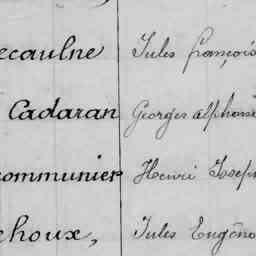 ecaulne Jules françois
Cadaran Georges alphonse
communier Henri Joseph
ehoux, Jules Eugène